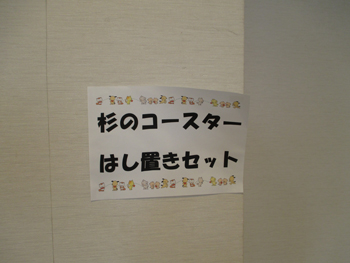 杉のコースター
はし置きセット